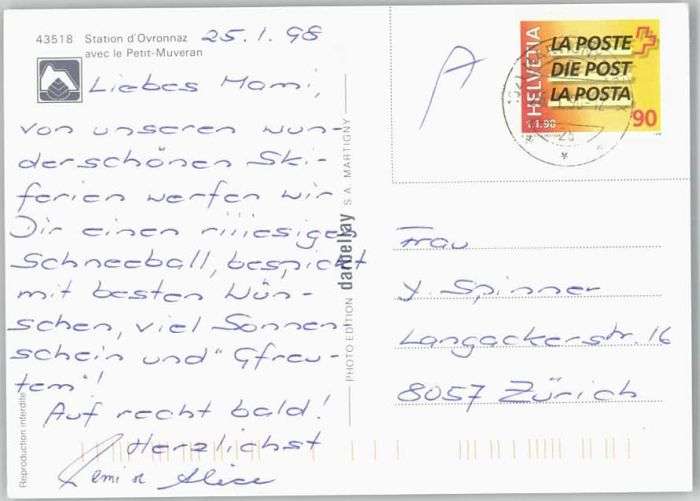 43518 Station d'Ovronnaz
avec le Petit-Muveran
25.1.98
Liebes Mami,
von unseren wun-
derschönen Ski-
ferien werfen wir
Dir einen riiiesigen
Schneeball, bespickt
mit besten Wün-
schen, viel Sonnen
schein und "Gfreu-
tem"!
Auf recht bald!
Herzlichst
Alice
Reproduction interdite
PHOTO EDITION darbellay S.A. MARTIGNY
A
HELVETIA
LA POSTE
DIE POST
LA POSTA
1.1.98
90
Frau
Y. Spinner
Langackerstr. 16
8057 Zürich